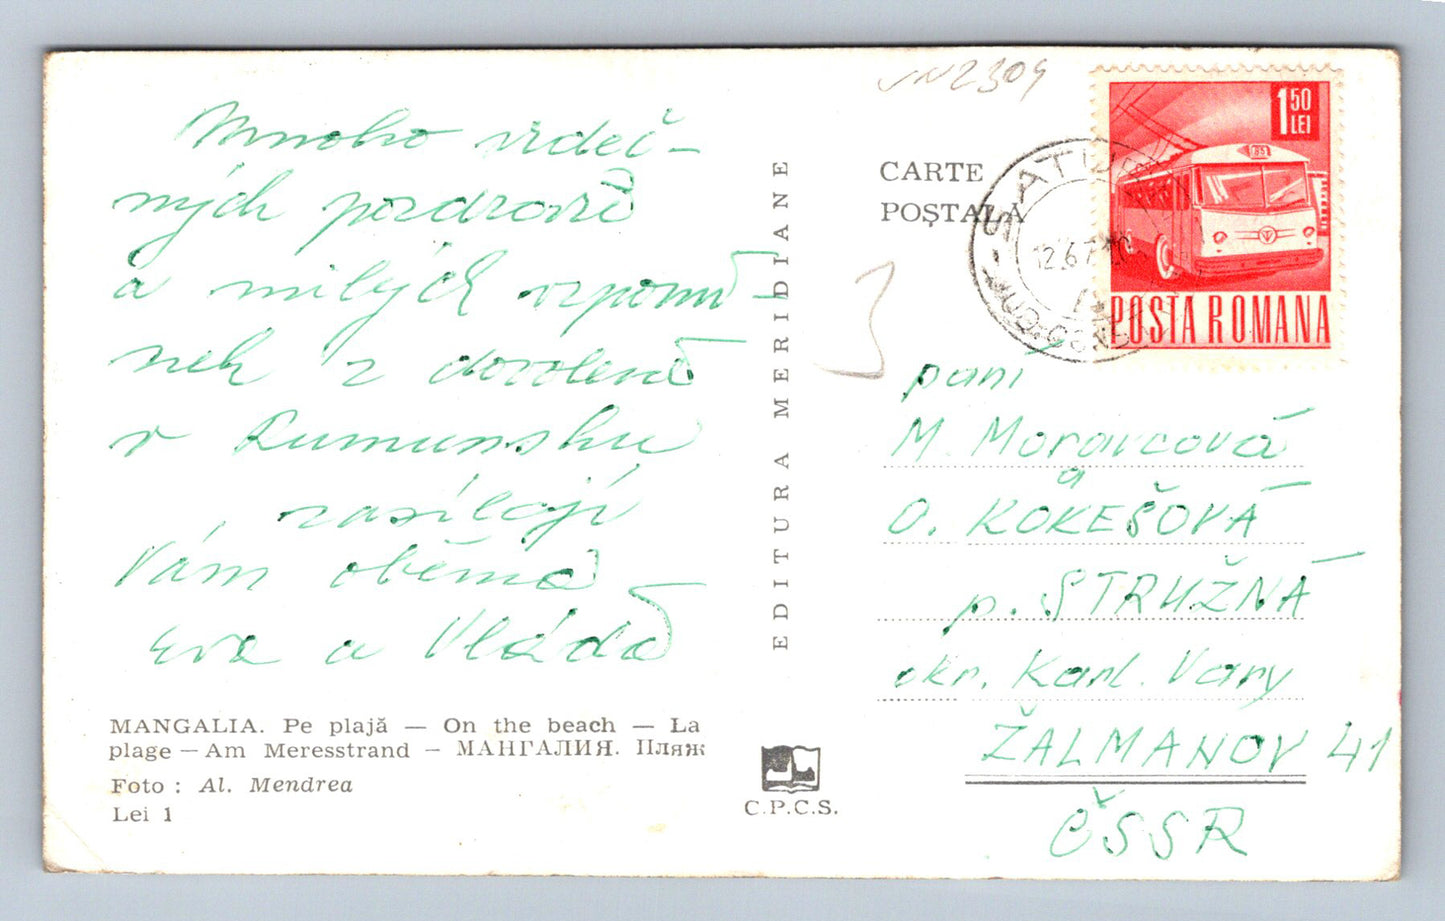 Mnoho srdeč-
ných pozdravů
a milých vzpomí-
nek z dovolené
v Rumunsku
zasílají
Vám oběma
Eva a Vláďa
MANGALIA. Pe plajă — On the beach — La
plage — Am Meresstrand — МАНГАЛИЯ. Пляж
Foto : Al. Mendrea
Lei 1
EDITURA MERIDIANE
C.P.C.S.
2304
CARTE
POȘTALĂ
3
1 50
LEI
POSTA ROMANA
12.6.7
paní
M. Moravcová
a
O. KOKEŠOVÁ
p. STRUŽNÁ
okr. Karl. Vary
ŽALMANOV 41
ČSSR